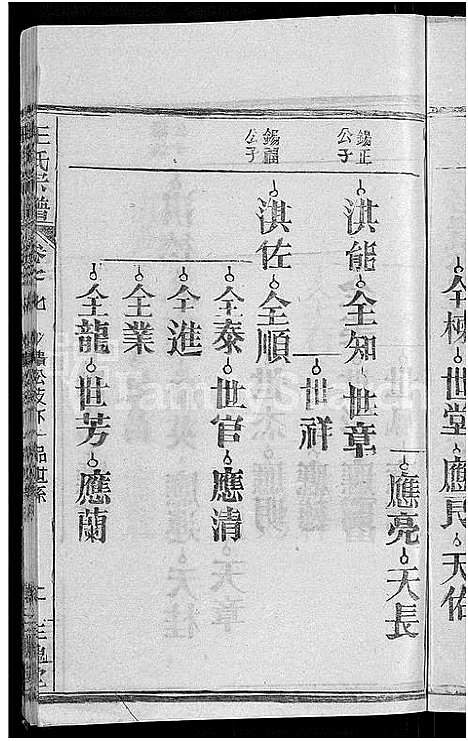 仝棟 世堂 應民 天佑
錫正公子
洪能 仝知 世章 應亮 天長
世祥
錫福公子
洪佐 仝順
仝泰 世官 應清
仝進
仝業
仝龍 世芳 應蘭
王氏宗譜 卷之